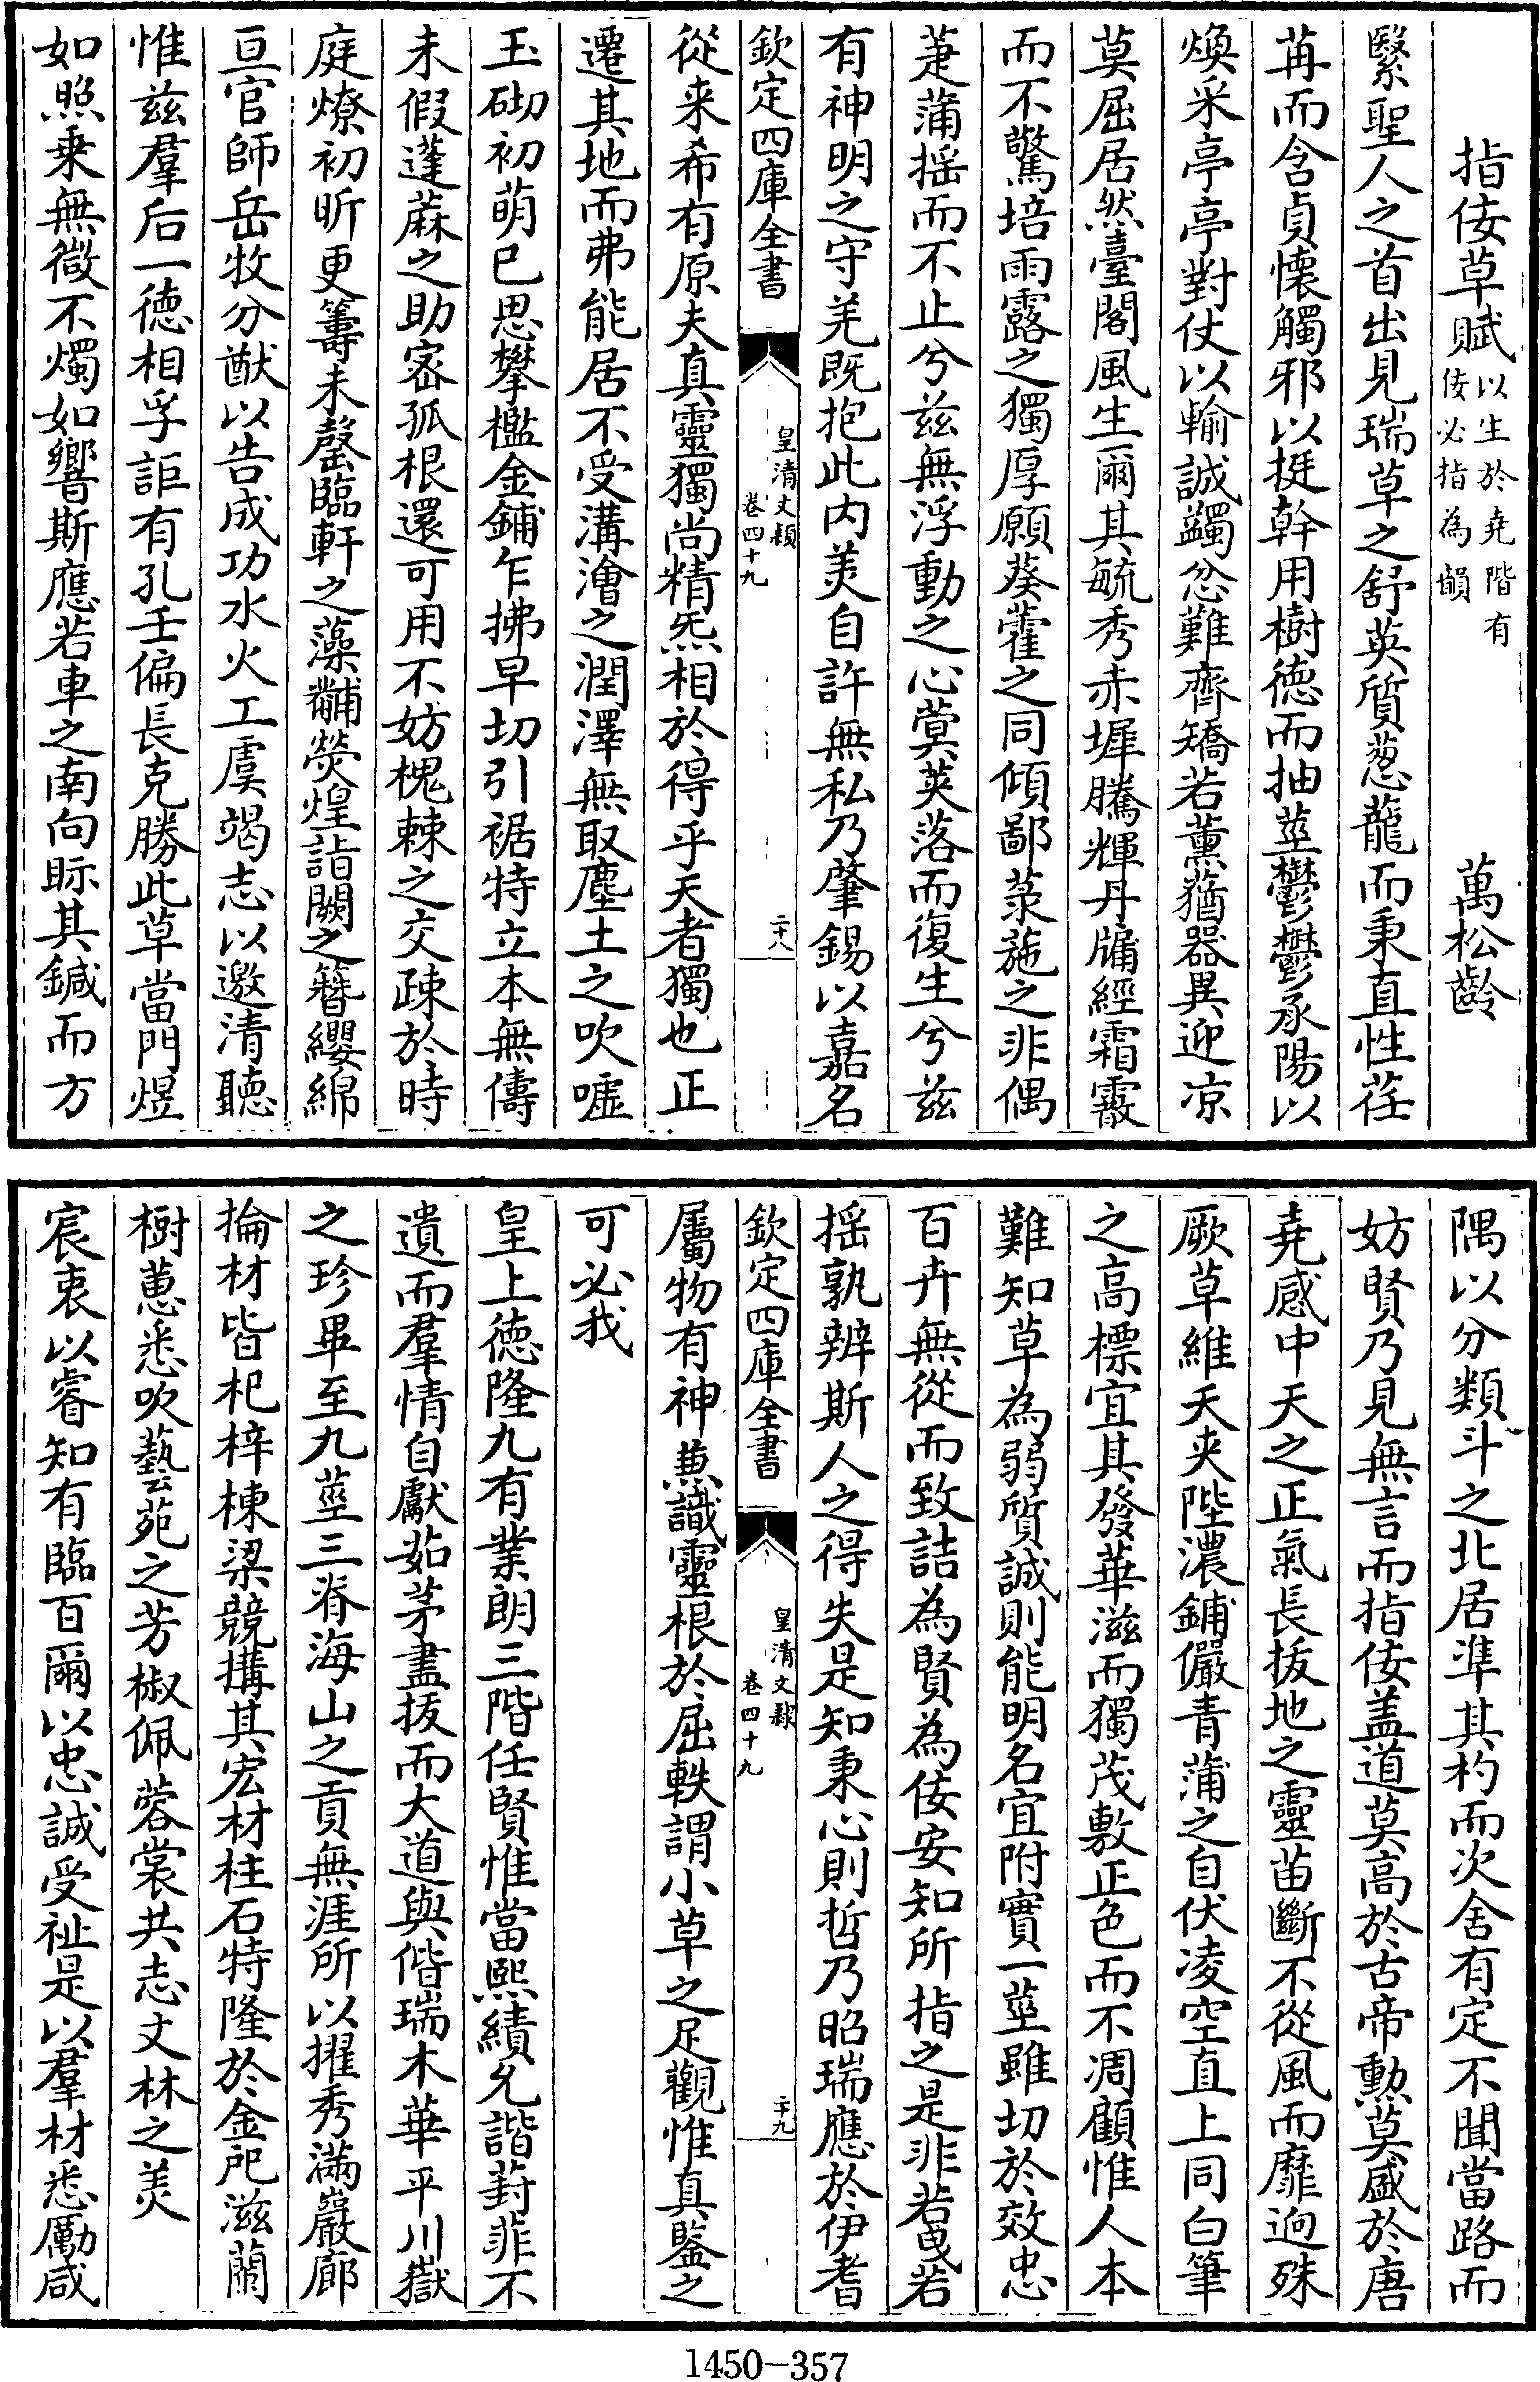 指佞草賦以生於堯階有佞必指為韻　萬松齡
繄聖人之首出見瑞草之舒英質葱蘢而秉直性荏
苒而含貞懷觸邪以挺幹用樹德而抽莖鬱鬱承陽以
煥采亭亭對仗以輸誠蠲忿難齊矯若薰蕕器異迎凉
莫屈居然臺閣風生爾其毓秀赤墀騰輝丹牖經霜霰
而不驚培雨露之獨厚願葵藿之同傾鄙菉葹之非偶
萐蒲摇而不止兮兹無浮動之心蓂莢落而復生兮兹
有神明之守羌既抱此内美自許無私乃肇錫以嘉名
從来希有原夫真靈獨尚精炁相於得乎天者獨也正
遷其地而弗能居不受溝澮之潤澤無取塵土之吹噓
玉砌初萌已思攀檻金鋪乍拂早切引裾特立本無儔
未假蓬蔴之助宻孤根還可用不妨槐棘之交疎於時
庭燎初昕更籌未罄臨軒之藻黼熒煌詣闕之簪纓綿
亘官師岳牧分猷以告成功水火工虞竭志以邀清聽
惟兹羣后一德相孚詎有孔壬偏長克勝此草當門煜
如照乗無微不燭如響斯應若車之南向眎其鍼而方
欽定四庫全書
皇清文穎
卷四十九
二十八
隅以分類斗之北居凖其杓而次舍有定不聞當路而
妨賢乃見無言而指佞盖道莫高於古帝勲莫盛於唐
堯感中天之正氣長拔地之靈苗斷不從風而靡逈殊
厥草維夭夾陛濃鋪儼青蒲之自伏凌空直上同白筆
之高標宜其發華滋而獨茂敷正色而不凋顧惟人本
難知草為弱質誠則能明名宜附實一莖雖切於效忠
百卉無從而致詰為賢為佞安知所指之是非若曵若
摇孰辨斯人之得失是知秉心則哲乃昭瑞應於伊耆
屬物有神蕙識靈根於屈軼謂小草之足觀惟真鑒之
可必我
皇上德隆九有業朗三階任賢惟當熙績允諧葑菲不
遺而羣情自獻茹茅盡拔而大道與偕瑞木華平川嶽
之珍畢至九莖三脊海山之貢無涯所以擢秀滿巖廊
掄材皆杞梓棟梁競搆其宏材柱石特隆於金戺滋蘭
樹蕙悉吹藝苑之芳椒佩蓉裳共志文林之美
宸衷以睿知有臨百爾以忠誠受祉是以羣材悉勵咸
欽定四庫全書
皇清文穎
卷四十九
二十九
1450-357